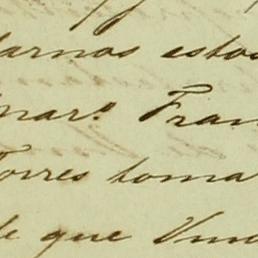 darnos estos
mar.º Fran
Torres toma
de que Vmd